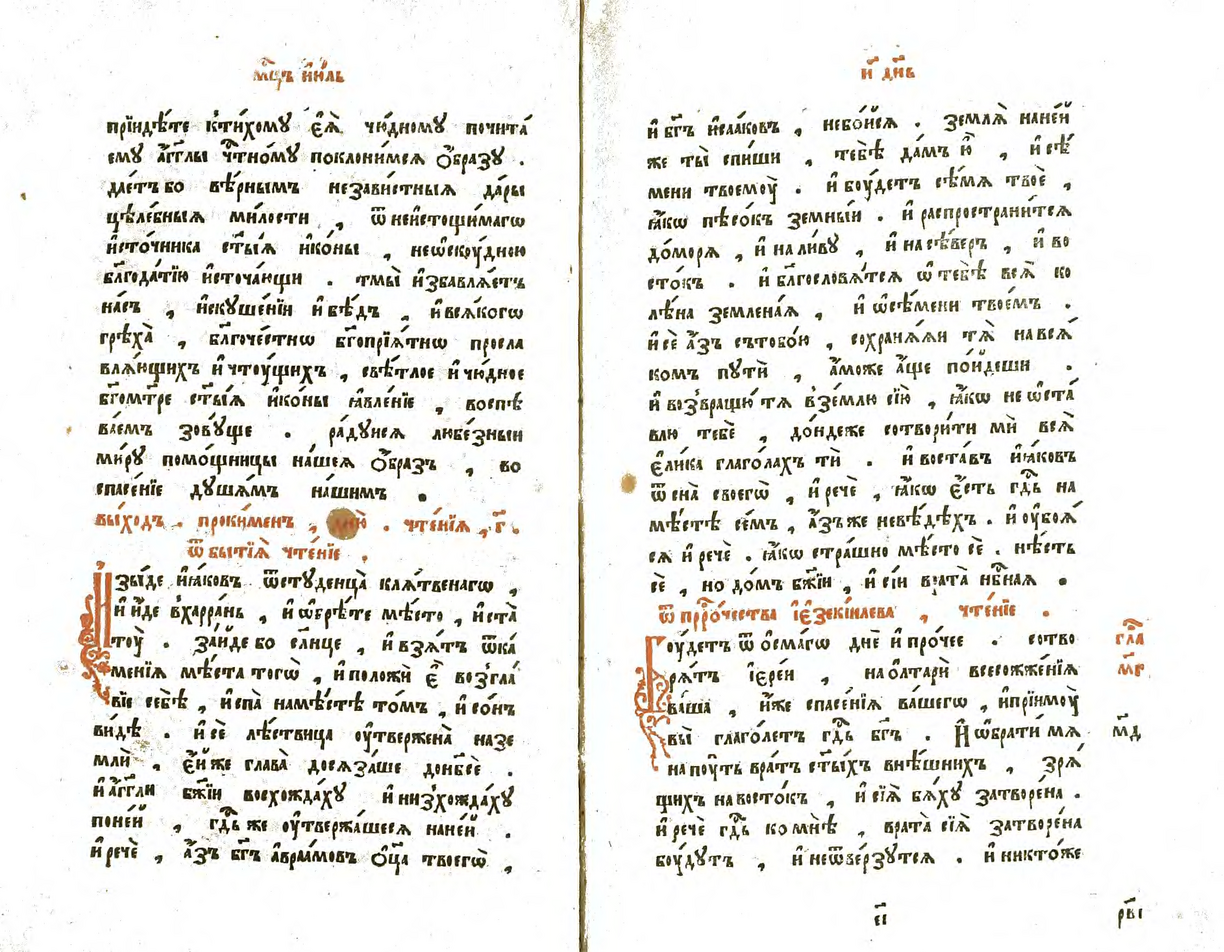 мⷭ҇цъ і҆ю́ль
прїиде́те к̾ти́хомꙋ є҆ѧ̀ чю́дномꙋ почита́
емꙋ а҆́гг҃лы чⷭ҇тно́мꙋ поклони́мсѧ ѻ҆́бразꙋ .
дае́тъ бо вѣ́рнымъ неза́вистныѧ да́ры
цѣле́бныѧ ми́лости , ѿ неистощи́магѡ
и҆сто́чника ст҃ы́ѧ и҆ко́ны , неѡ҆скꙋ́дною
блгⷣа́тїю и҆сточа́ющи . тмы̀ и҆збавлѧ́етъ
на́съ , и҆скꙋше́нїи и҆ бѣ́дъ , и҆ всѧ́когѡ
грѣха̀ , бл҃гоче́стнѡ бг҃опрїѧ́тнѡ просла
влѧ́ющихъ и҆ чтꙋ́щихъ , свѣ́тлое и҆ чю́дное
бг҃омт҃ре ст҃ы́ѧ и҆ко́ны ꙗ҆вле́нїе , воспѣ
ва́емъ зовꙋ́ще . ра́дꙋисѧ любе́зныи
ми́рꙋ помо́щницы на́шеѧ ѻ҆́бразъ , во
спасе́нїе дꙋша́мъ на́шимъ .
вы́ходъ . проки́менъ , дню̀ . чте́нїѧ , г҃ .
ѿ бытїѧ̀ чте́нїе .
Изы́де і҆а́ковъ ѿ стꙋденца̀ клѧ́твенагѡ ,
и҆ и҆́де в̾харра́нь , и҆ ѡ҆брѣ́те мѣ́сто , и҆ ста̀
тꙋ̀ . за́иде бо сл҃нце , и҆ взѧ́тъ ѿ ка́
менїѧ мѣ́ста тогѡ̀ , и҆ положѝ є҆̀ возгла́
вїе себѣ̀ , и҆ спа̀ на мѣ́стѣ то́мъ , и҆ со́нъ
ви́дѣ . и҆ сѐ лѣ́ствица ᲂу҆твержена̀ на зе
млѝ , є҆́иже глава̀ досѧза́ше до нб҃сѐ .
и҆ а҆́гг҃ли бж҃їи восхожда́хꙋ и҆ низ̾хожда́хꙋ
по не́й , гдⷭ҇ь же ᲂу҆твержа́шесѧ на не́й .
и҆ речѐ , а҆́зъ бг҃ъ а҆враа́мовъ ѻ҆ц҃а̀ твоегѡ̀ ,
и҃ дн҃ь
и҆ бг҃ъ и҆саа́ковъ , не бо́исѧ . землѧ̀ на не́й
же ты̀ спи́ши , тебѣ̀ да́мъ ю҆̀ , и҆ сѣ́
мени твоемꙋ̀ . и҆ бꙋ́детъ сѣ́мѧ твоѐ ,
ꙗ҆́кѡ пѣсо́къ земны́й . и҆ распространи́тсѧ
до́ морѧ , и҆ на ли́вꙋ , и҆ на сѣ́веръ , и҆ во
сто́къ . и҆ бл҃гословѧ́тсѧ ѡ҆ тебѣ̀ всѧ̀ ко
лѣ́на земле́наѧ , и҆ ѡ҆ сѣ́мени твое́мъ .
и҆ сѐ а҆́зъ съ тобо́ю , сохранѧ́ѧи тѧ̀ на всѧ́
комъ пꙋтѝ , а҆́може а҆́ще по́йдеши .
и҆ воз̾вращю́ тѧ в̾зе́млю сїю̀ , ꙗ҆́кѡ не ѡ҆ста́
влю тебѐ , до́ндеже сотвори́ти мѝ всѧ̀
є҆ли́ка глаго́лахъ тѝ . и҆ воста́въ и҆ꙗ́ковъ
ѿ сна̀ своегѡ̀ , и҆ речѐ , ꙗ҆́кѡ є҆́сть гдⷭ҇ь на
мѣ́стѣ се́мъ , а҆́зъ же не вѣ́дѣхъ . и҆ ᲂу҆боѧ́
сѧ и҆ речѐ . ꙗ҆́кѡ стра́шно мѣ́сто сѐ . нѣ́сть
сѐ , но до́мъ бж҃їи , и҆ сїѝ врата̀ нбⷭ҇ная .
ѿ прⷪ҇ро́чества і҆є҆зекі́илева , чте́нїе .
Бꙋ́детъ ѿ ѻ҆сма́гѡ днѐ и҆ про́чее . сотво
рѧ́тъ і҆ере́и , на ѻ҆лтарѝ всесожже́нїѧ
ва́ша , и҆́же спасе́нїѧ ва́шегѡ , и҆ прїимꙋ̀
вы̀ глаго́летъ гдⷭ҇ь бг҃ъ . И҆ ѡ҆брати́ мѧ
на пꙋ́ть вра́тъ ст҃ы́хъ внѣ́шнихъ , зрѧ́
щихъ на восто́къ , и҆ сїѧ̀ бѧ́хꙋ затворе́на .
и҆ речѐ гдⷭ҇ь ко мнѣ̀ , врата̀ сїѧ̀ затворе́на
бꙋ́дꙋтъ , и҆ не ѿве́рзꙋтсѧ . и҆ никто́же
гла
м҃г
м҃д
є҃і
рв҃і